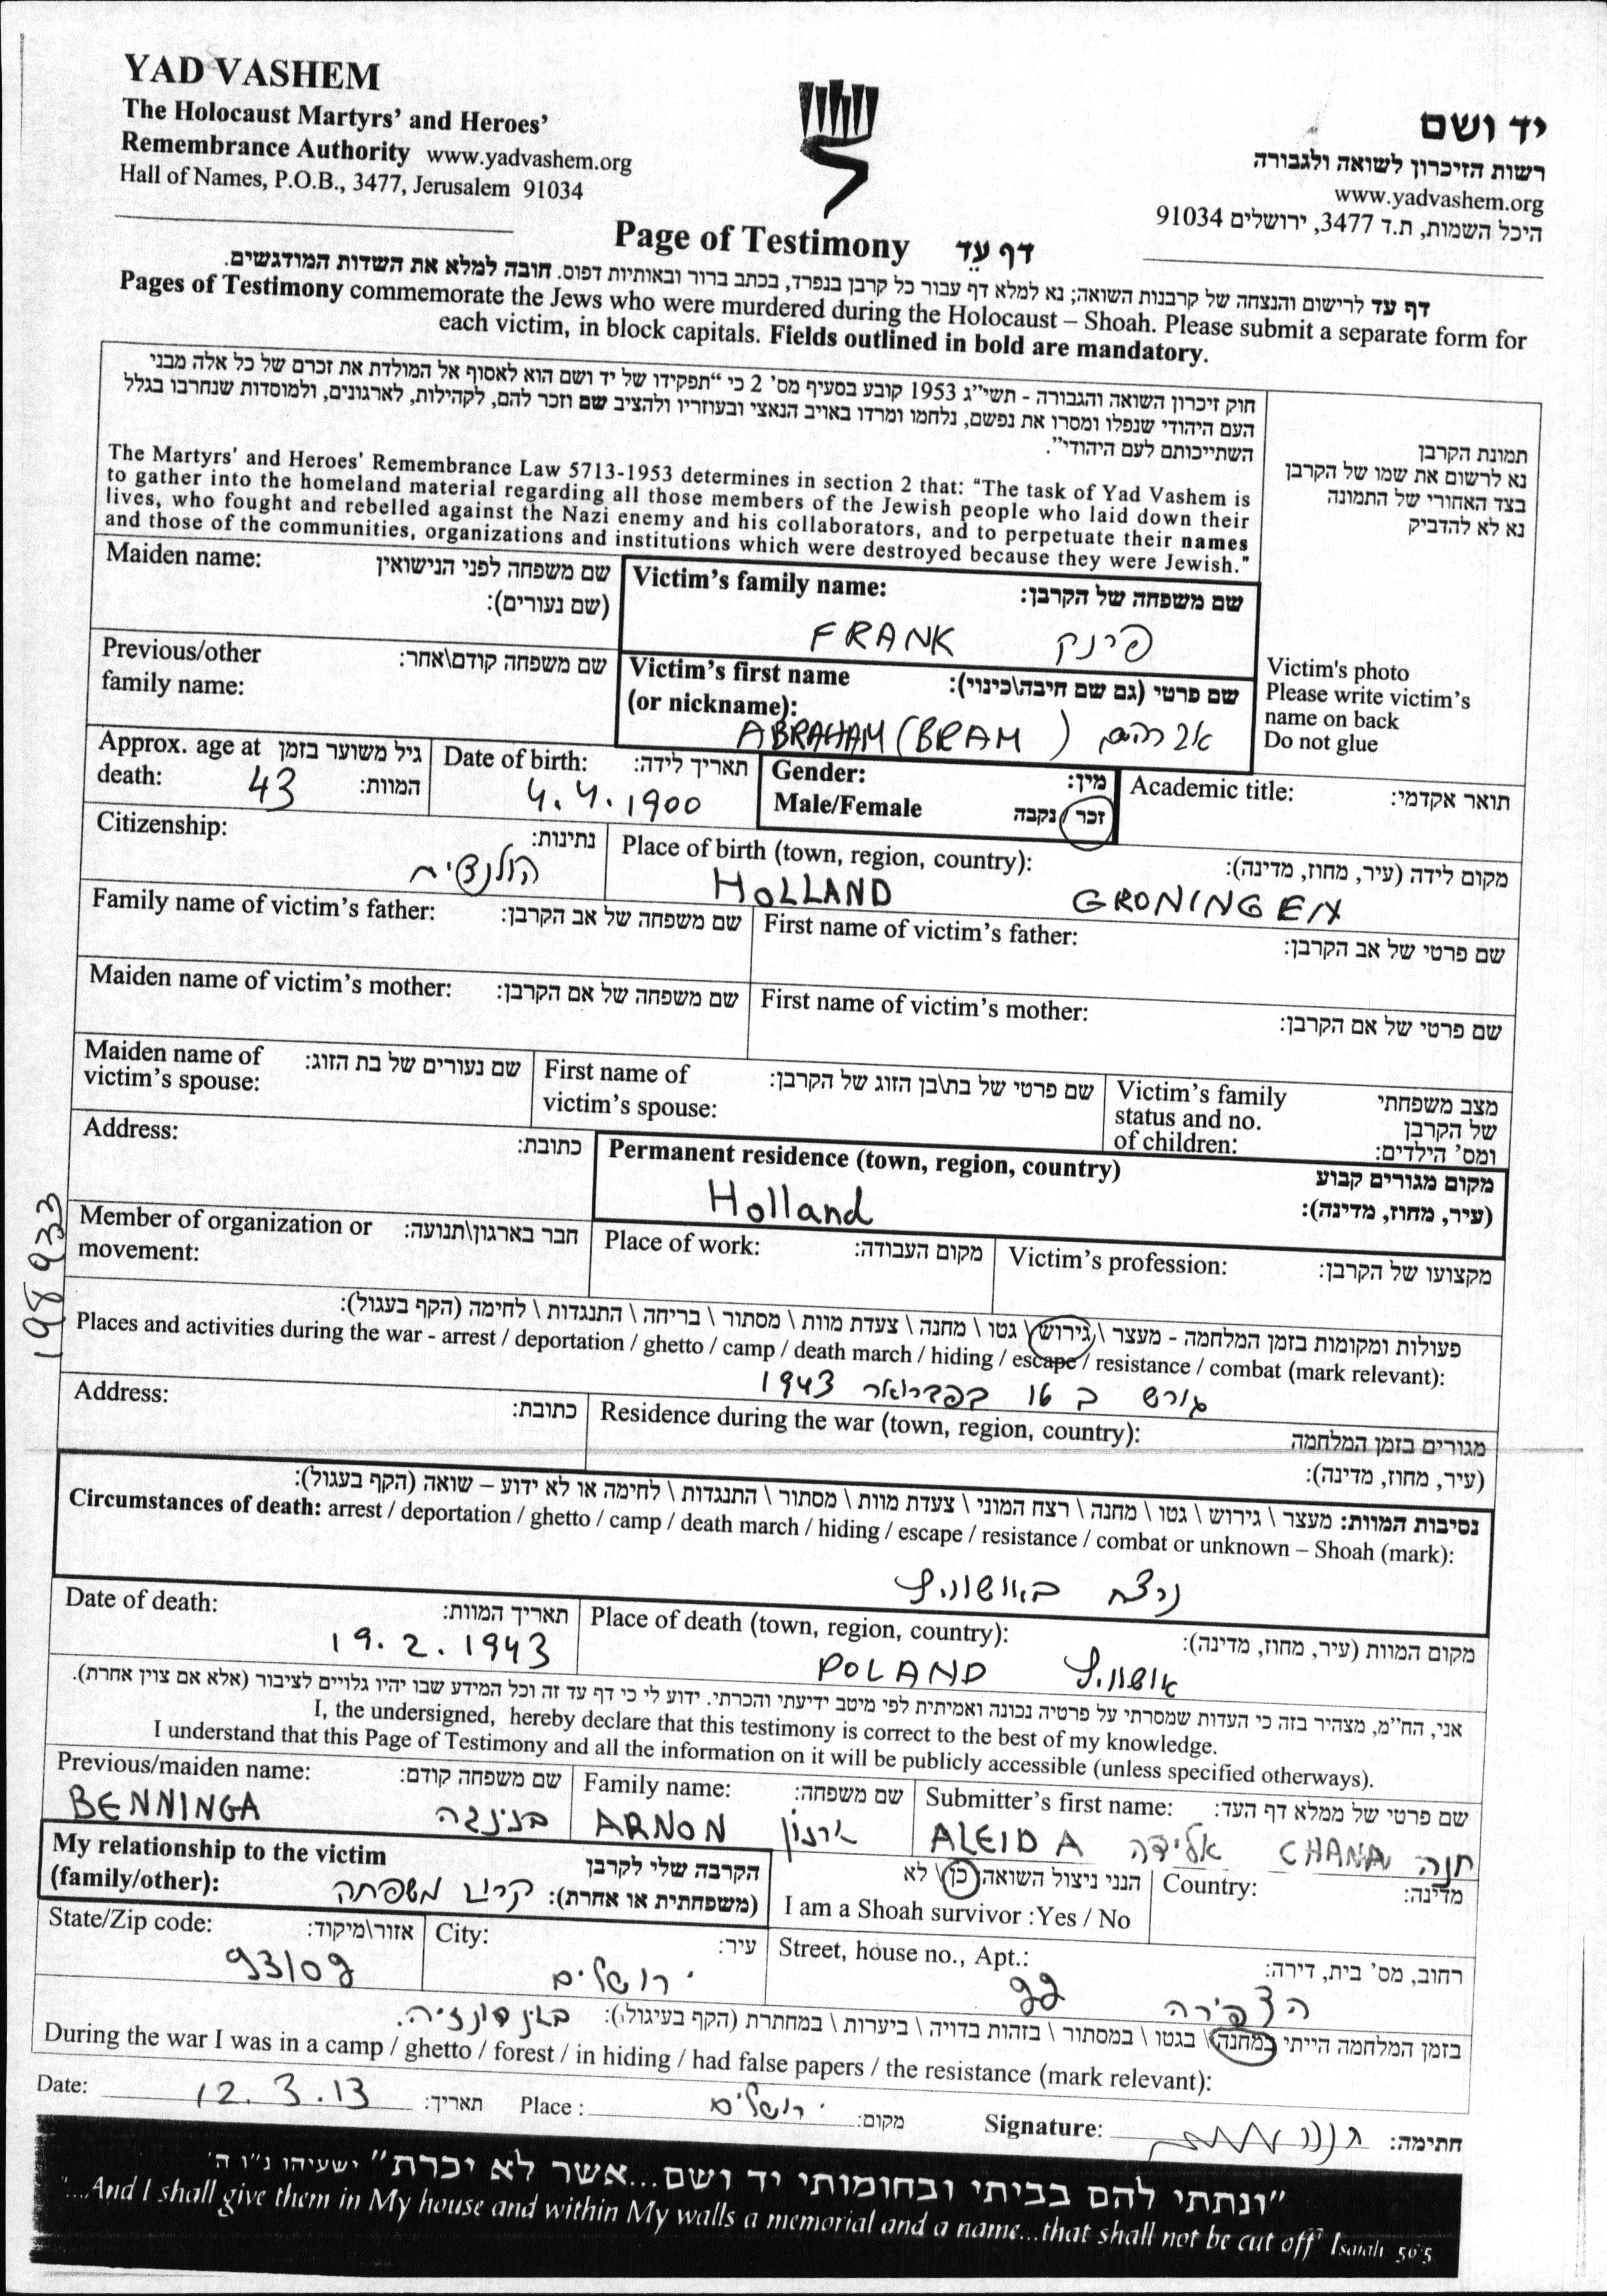 YAD VASHEM
The Holocaust Martyrs' and Heroes'
Remembrance Authority www.yadvashem.org
Hall of Names, P.O.B., 3477, Jerusalem 91034
יד ושם
רשות הזיכרון לשואה ולגבורה
www.yadvashem.org
היכל השמות, ת.ד 3477, ירושלים 91034
Page of Testimony דף עֵד
דף עד לרישום והנצחה של קרבנות השואה; נא למלא דף עבור כל קרבן בנפרד, בכתב ברור ובאותיות דפוס. חובה למלא את השדות המודגשים.
Pages of Testimony commemorate the Jews who were murdered during the Holocaust – Shoah. Please submit a separate form for
each victim, in block capitals. Fields outlined in bold are mandatory.
חוק זיכרון השואה והגבורה - תשי"ג 1953 קובע בסעיף מס' 2 כי "תפקידו של יד ושם הוא לאסוף אל המולדת את זכרם של כל אלה מבני
העם היהודי שנפלו ומסרו את נפשם, נלחמו ומרדו באויב הנאצי ובעוזריו ולהציב שם וזכר להם, לקהילות, לארגונים, ולמוסדות שנחרבו בגלל
השתייכותם לעם היהודי".
The Martyrs' and Heroes' Remembrance Law 5713-1953 determines in section 2 that: "The task of Yad Vashem is
to gather into the homeland material regarding all those members of the Jewish people who laid down their
lives, who fought and rebelled against the Nazi enemy and his collaborators, and to perpetuate their names
and those of the communities, organizations and institutions which were destroyed because they were Jewish."
תמונת הקרבן
נא לרשום את שמו של הקרבן
בצד האחורי של התמונה
נא לא להדביק
Victim's photo
Please write victim's
name on back
Do not glue
Maiden name: שם משפחה לפני הנישואין
(שם נעורים):
Victim's family name: שם משפחה של הקרבן:
FRANK פרנק
Previous/other שם משפחה קודם\אחר:
family name:
Victim's first name שם פרטי (גם שם חיבה\כינוי):
(or nickname):
ABRAHAM (BRAM) אברהם
Approx. age at גיל משוער בזמן
death: 43 המוות:
Date of birth: תאריך לידה:
4.4.1900
Gender: מין:
Male/Female זכר / נקבה
Academic title: תואר אקדמי:
Citizenship: נתינות:
הולנדית
Place of birth (town, region, country): מקום לידה (עיר, מחוז, מדינה):
HOLLAND GRONINGEN
Family name of victim's father: שם משפחה של אב הקרבן:
First name of victim's father: שם פרטי של אב הקרבן:
Maiden name of victim's mother: שם משפחה של אם הקרבן:
First name of victim's mother: שם פרטי של אם הקרבן:
Maiden name of שם נעורים של בת הזוג:
victim's spouse:
First name of שם פרטי של בת\בן הזוג של הקרבן:
victim's spouse:
Victim's family מצב משפחתי
status and no. של הקרבן
of children: ומס' הילדים:
Address: כתובת:
Permanent residence (town, region, country) מקום מגורים קבוע
Holland (עיר, מחוז, מדינה):
198933
Member of organization or חבר בארגון\תנועה:
movement:
Place of work: מקום העבודה:
Victim's profession: מקצועו של הקרבן:
פעולות ומקומות בזמן המלחמה - מעצר \ גירוש \ גטו \ מחנה \ צעדת מוות \ מסתור \ בריחה \ התנגדות \ לחימה (הקף בעגול):
Places and activities during the war - arrest / deportation / ghetto / camp / death march / hiding / escape / resistance / combat (mark relevant):
גורש ב 16 בפברואר 1943
Address: כתובת:
Residence during the war (town, region, country): מגורים בזמן המלחמה
(עיר, מחוז, מדינה):
נסיבות המוות: מעצר \ גירוש \ גטו \ מחנה \ רצח המוני \ צעדת מוות \ מסתור \ התנגדות \ לחימה או לא ידוע – שואה (הקף בעגול):
Circumstances of death: arrest / deportation / ghetto / camp / death march / hiding / escape / resistance / combat or unknown – Shoah (mark):
נרצח באושוויץ
Date of death: תאריך המוות:
19.2.1943
Place of death (town, region, country): מקום המוות (עיר, מחוז, מדינה):
POLAND אושוויץ
אני, הח"מ, מצהיר בזה כי העדות שמסרתי על פרטיה נכונה ואמיתית לפי מיטב ידיעתי והכרתי. ידוע לי כי דף עד זה וכל המידע שבו יהיו גלויים לציבור (אלא אם צוין אחרת).
I, the undersigned, hereby declare that this testimony is correct to the best of my knowledge.
I understand that this Page of Testimony and all the information on it will be publicly accessible (unless specified otherways).
Previous/maiden name: שם משפחה קודם:
BENNINGA בנינגה
Family name: שם משפחה:
ARNON ארנון
Submitter's first name: שם פרטי של ממלא דף העד:
ALEIDA אלידה CHANA חנה
My relationship to the victim הקרבה שלי לקרבן
(family/other): (משפחתית או אחרת): קרוב משפחה
הנני ניצול השואה כן \ לא
I am a Shoah survivor :Yes / No
Country: מדינה:
State/Zip code: אזור\מיקוד:
93109
City: עיר:
ירושלים
Street, house no., Apt.: רחוב, מס' בית, דירה:
הצפירה 22
בזמן המלחמה הייתי במחנה \ בגטו \ במסתור \ בזהות בדויה \ ביערות \ במחתרת (הקף בעיגול):
During the war I was in a camp / ghetto / forest / in hiding / had false papers / the resistance (mark relevant):
Date: 12.3.13 תאריך: Place : ירושלים מקום: Signature: חתימה:
"ונתתי להם בביתי ובחומותי יד ושם...אשר לא יכרת" ישעיהו נ"ו ה'
"...And I shall give them in My house and within My walls a memorial and a name...that shall not be cut off" Isaiah 56:5